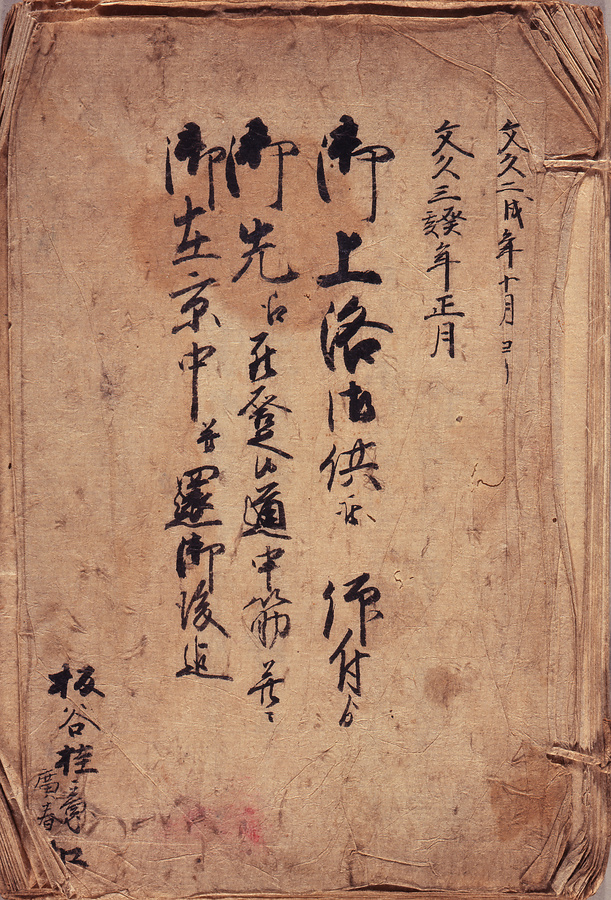 文久二戌年十月ヨリ
文久三癸亥年正月
御上洛御供被 仰付ゟ
御先江罷登り道中筋并ニ
御在京中并還御後迄
板谷桂意
廣春